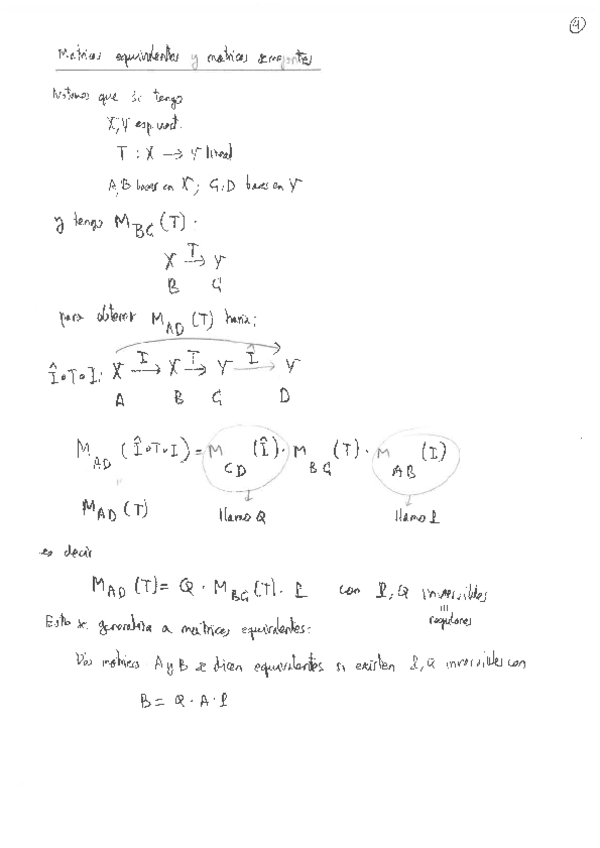 4
Matrices equivalentes y matrices semejantes
que si tengo
X, Y esp. vect.
T : X → Y lineal
A, B bases en X; C, D bases en Y
y tengo M_BC (T).
X →T Y
B C
para obtener M_AD (T) haría:
Î∘T∘I: X →I X →T Y →Î Y
A B C D
M_AD (Î∘T∘I) = M_CD (Î) · M_BC (T) · M_AB (I)
M_AD (T) llamo Q llamo P
es decir
M_AD (T) = Q · M_BC (T) · P con P, Q inversibles
regulares
Esto se generaliza a matrices equivalentes:
Dos matrices A y B se dicen equivalentes si existen P, Q inversibles con
B = Q · A · P